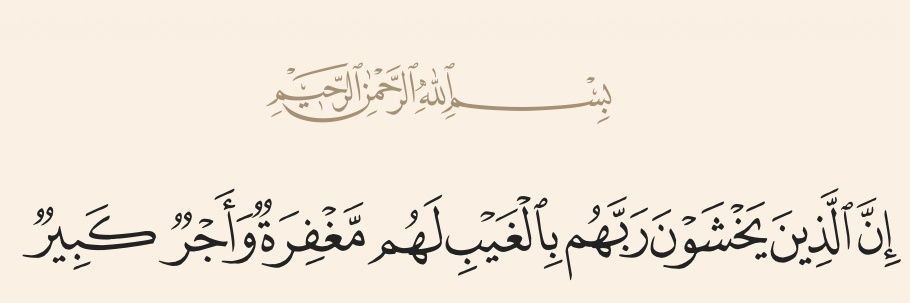 بِسْمِ ٱللَّهِ ٱلرَّحْمَٰنِ ٱلرَّحِيمِ
إِنَّ ٱلَّذِينَ يَخْشَوْنَ رَبَّهُم بِٱلْغَيْبِ لَهُم مَّغْفِرَةٌ وَأَجْرٌ كَبِيرٌ